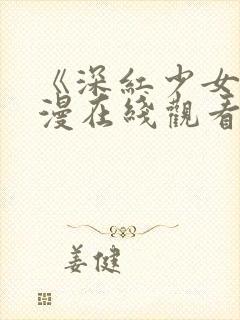 《深红少女
漫在线观看
姜健